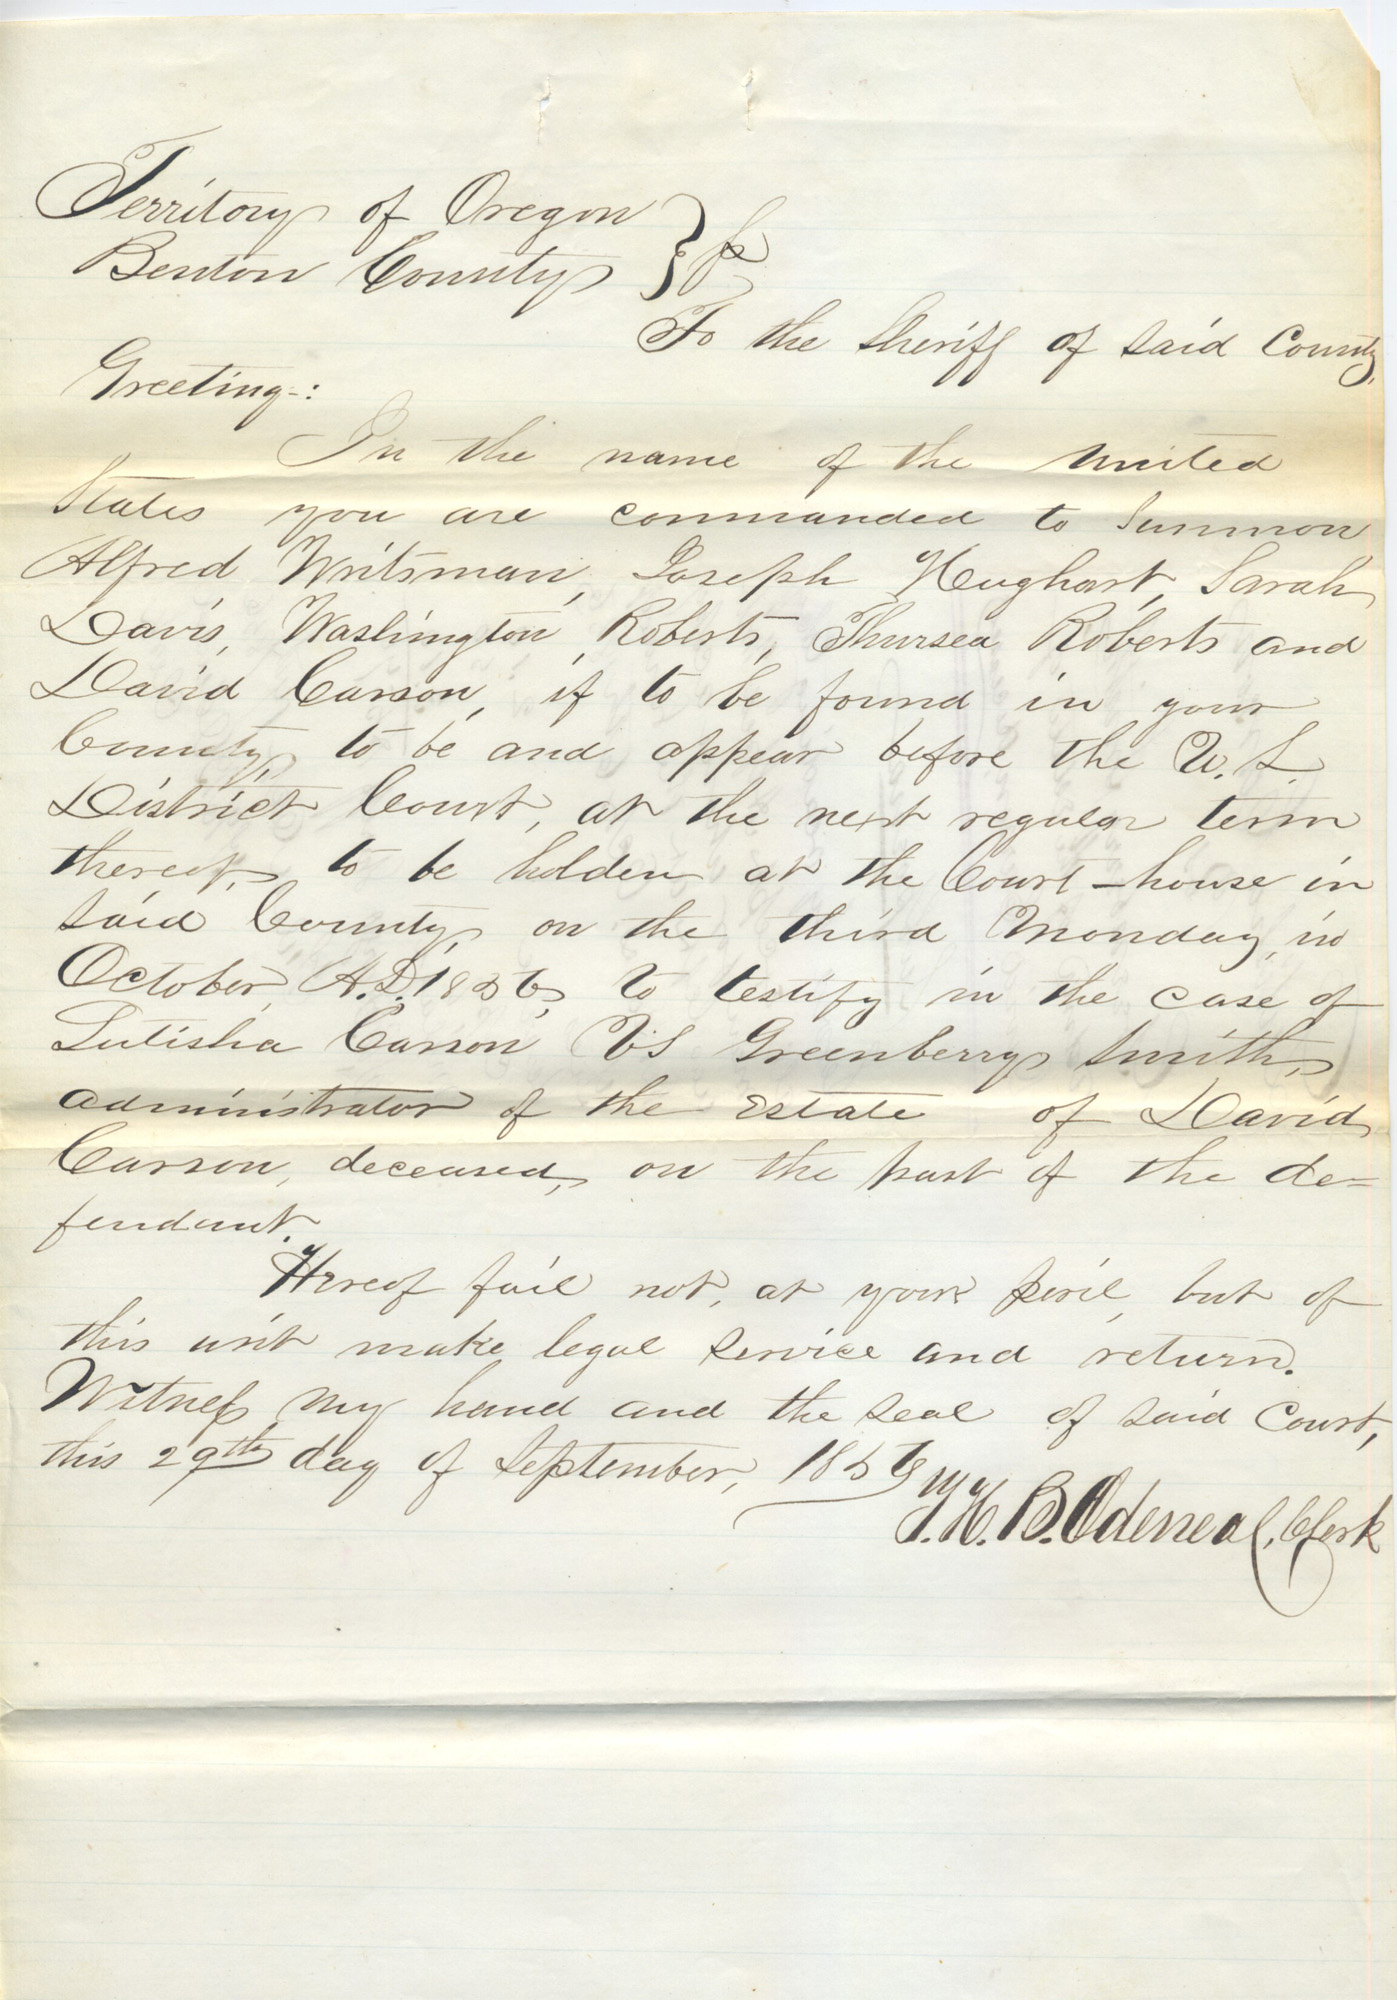 Territory of Oregon } ss
Benton County }
To the Sheriff of said County,
Greeting-:
In the name of the United
States you are commanded to summon
Alfred Writsman, Joseph Hughart, Sarah
Davis, Washington Roberts, Thursea Roberts and
David Carson, if to be found in your
County, to be and appear before the U.S.
District Court, at the next regular term
thereof, to be holden at the Court-house in
said County, on the third Monday, in
October, A.D. 1856, to testify in the case of
Lutisha Carson vs Greenberry Smith,
administrator of the Estate of David
Carson, deceased, on the part of the de=
fendant.
Hereof fail not, at your peril, but of
this writ make legal service and return.
Witness my hand and the seal of said Court,
this 29th day of September, 1856
T. H. B. Odeneal, Clerk